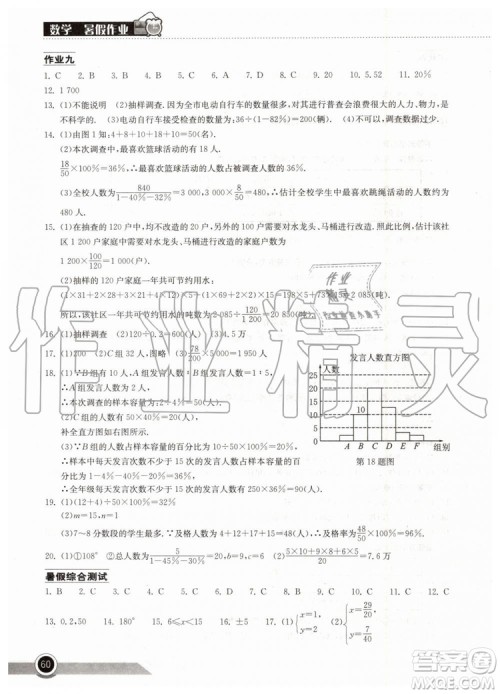 数学 暑假作业
作业九
1. C 2. B 3. D 4. A 5. C 6. C 7. C 8. C 9. 20 10. 5,52 11. 20%
12. 1 700
13. (1)不能说明 (2)抽样调查,因为全市电动自行车的数量很多,对其进行普查会浪费很多的人力、物力,是
不科学的. (3)电动自行车接受检查的数量:36÷(1-82%)=200(辆)
14. (1)由图1知:4+8+10+18+10=50(名)
(2)本次调查中,最喜欢篮球活动的人数有18人,
18/50×100%=36%,∴最喜欢篮球活动的人数占被调查人数的36%.
(3)全校人数为840/(1-40%-35%)×100%×8/50=480(人),∴估计全校学生中最喜欢跳绳活动的人数约为
480人.
15. (1)在抽查的120户中,均不改造的户数为20户,需要对水龙头、马桶进行改造的户数为100户,估计该社
区1 200户家庭中需要对水龙头、马桶进行改造的家庭户数为
1 200×100/120=1 000(户)
(2)抽样的120户家庭一年共可节约用水:
(1×31+2×28+3×21+4×12)×5+(1×20+2×15)×15=198×5+73×15=2 085(吨).
所以,该社区一年共可节约用水2 085×1 200/120=20 850(吨).
16. (1)抽样调查 (2)120÷0.2=600(人) (3)4.5万
17. (1)200 (2)C组32人,图略 (3)78/200×100%=39%
18. (1)∵B组有10人,A组发言人数:B组发言人数=1:5,
∴A组发言人数为2人,
∴本次调查的样本容量为:2÷4%=50(人)
补全直方图如右图:
(2)∵A组发言人数占样本容量的百分比为4%,B组发言人数占样本容量的百分比为10÷50=20%
∴样本中每天发言次数不少于15次的发言人数为1-4%-60%=36%
∴全年级每天发言次数不少于15次的发言人数有250×36%=90(人).
发言人数直方图
人数
10
A B C D E F 组别
第18题图
19. (1)(12+4)÷50=32%
(2)m=15
(3)7~8分数段的学生最多,及格人数=4+12+15+17=48(人),及格率=48/50×100%=96%
20. (1)①108° ②总人数为5/(1-45%-30%)=20(人) (2)(5×10%+9×30%+10×45%)/20×10=7.6万
暑假综合测试
1. B 2. B 3. D 4. C 5. C 6. C 7. C 8. D 9. B 10. C 11. C 12. C
13. 0,2,50 14. 180° 15. 6≤x≤7 16. ±5 17. (1){x=1, y=2 (2){x=29/20, y=7/40
60
作业精灵